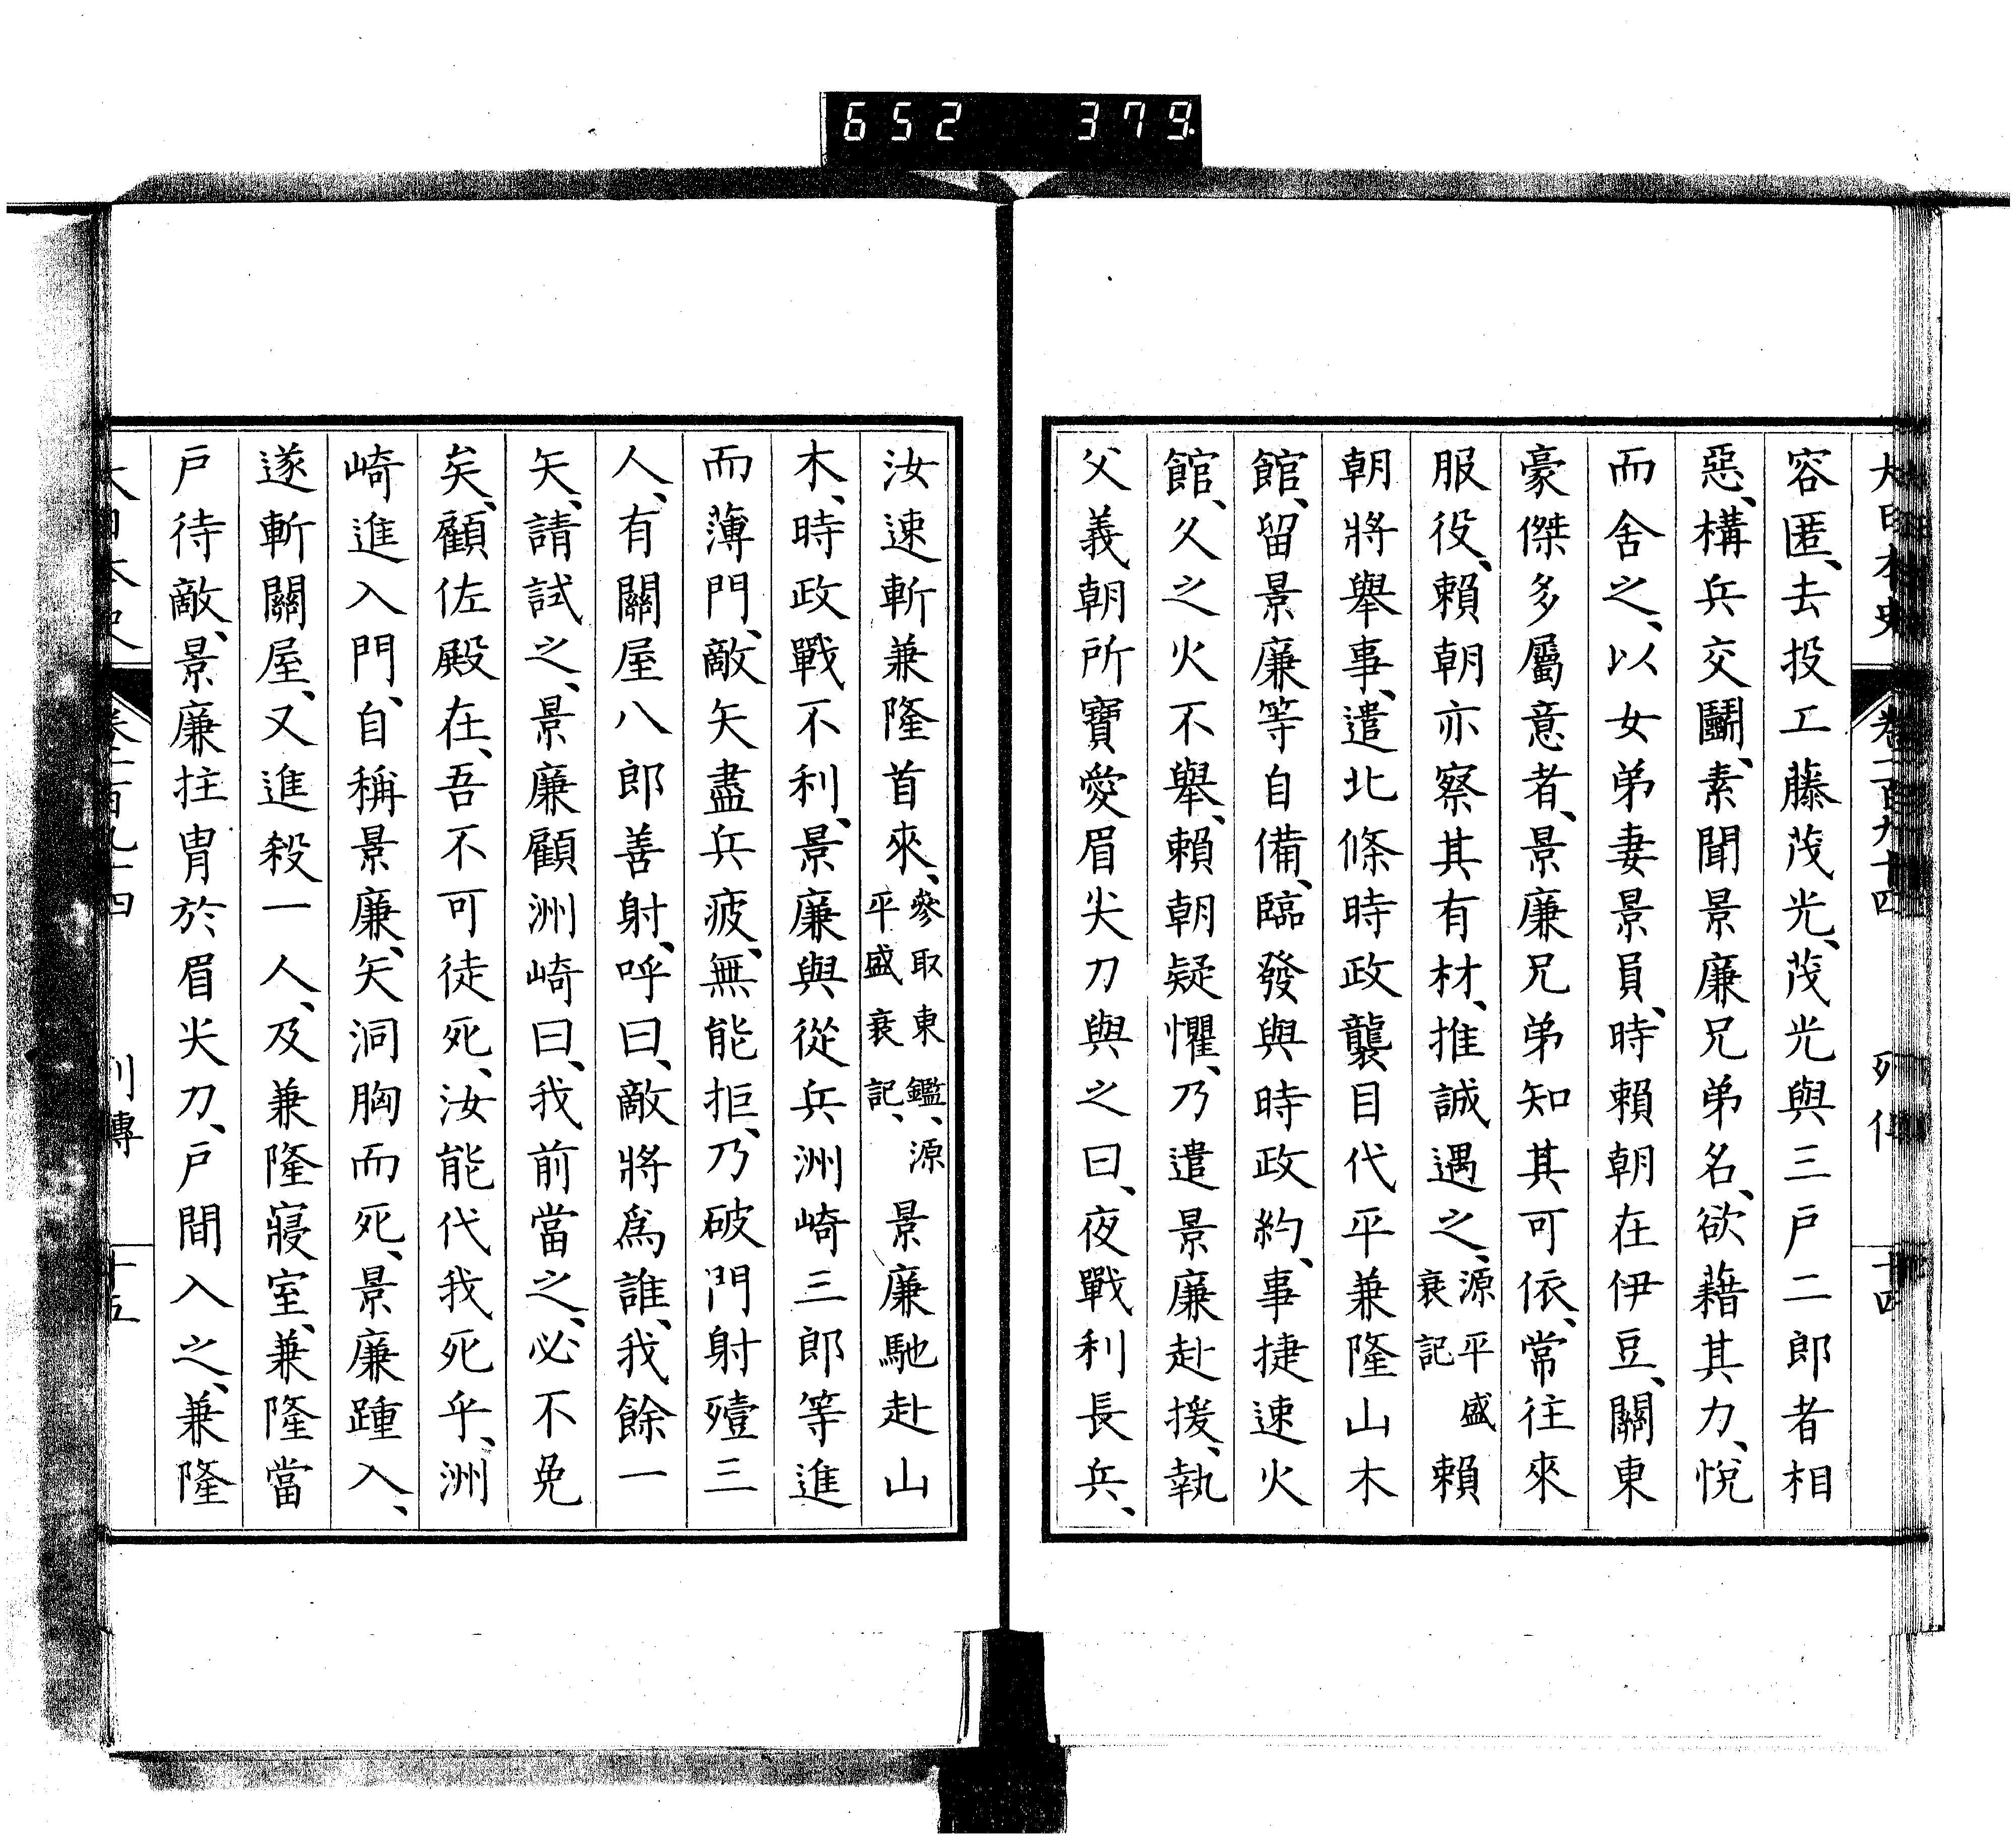 652 379
大日本史 卷一百九十四 列傳 十四
容匿、去投工藤茂光、茂光與三戸二郎者相
惡、構兵交鬬、素聞景廉兄弟名、欲藉其力、悅
而舍之、以女弟妻景員、時賴朝在伊豆、關東
豪傑多屬意者、景廉兄弟知其可依、常往來
服役、賴朝亦察其有材、推誠遇之、源平盛衰記 賴
朝將舉事、遣北條時政襲目代平兼隆山木
館、留景廉等自備、臨發與時政約、事捷速火
館、久之火不舉、賴朝疑懼、乃遣景廉赴援、執
父義朝所寶愛眉尖刀與之曰、夜戰利長兵、
汝速斬兼隆首來、參取東鑑、源平盛衰記、 景廉馳赴山
木、時政戰不利、景廉與從兵洲崎三郎等進
而薄門、敵矢盡兵疲、無能拒、乃破門射殪三
人、有關屋八郎善射、呼曰、敵將爲誰、我餘一
矢、請試之、景廉顧洲崎曰、我前當之、必不免
矣、顧佐殿在、吾不可徒死、汝能代我死乎、洲
崎進入門、自稱景廉、矢洞胸而死、景廉踵入、
遂斬關屋、又進殺一人、及兼隆寢室、兼隆當
戸待敵、景廉拄冑於眉尖刀、戸間入之、兼隆
大日本史 卷一百九十四 列傳 十五